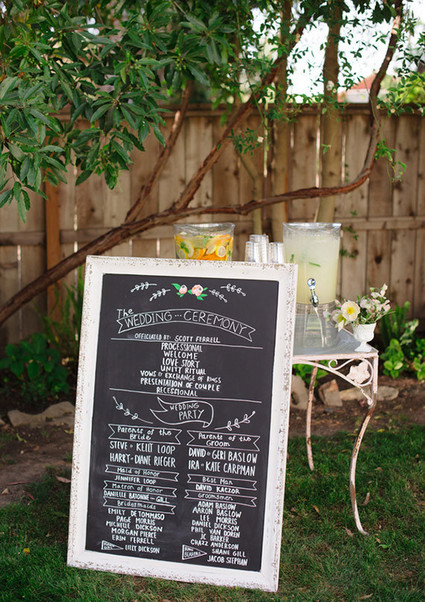 The
WEDDING CEREMONY
OFFICIATED BY: SCOTT FERRELL
PROCESSIONAL
WELCOME
LOVE STORY
UNITY RITUAL
VOWS & EXCHANGE OF RINGS
PRESENTATION OF COUPLE
RECESSIONAL
WEDDING PARTY
Parents of the Bride
STEVE + KELLI LOOP
HARRY + DIANE RIEGER
Maid of Honor
JENNIFER LOOP
Matron of Honor
DANIELLE BATONNE - GILL
Bridesmaids
EMILY DETOMMASO
PAGE MORRIS
MICHELLE DICKSON
MORGAN PIERCE
ERIN FERRELL
LILLY DICKSON
Parents of the Groom
DAVID + GERI BASLOW
IRA + KATE CARPMAN
Best Man
DAVID KACZOR
Groomsmen
ADAM BASLOW
AARON BASLOW
LEE MORRIS
DANIEL DICKSON
PHIL VAN DOREN
JC BARKER
CHAZZ ANDERSON
SHANE GILL
JACOB STEPHAN